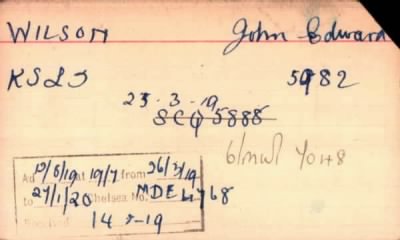 WILSON John Edward
KSLI 5982
23-3-19
SCQ 5888
6/MW 7048
Ad 19/6/19 at 19/7 from 26/3/19
to 27/1/20 Chelsea No. MDE 4768
14 - 19